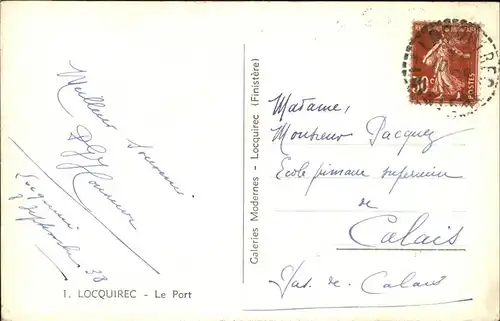 Meilleur Souvenir
Locquirec
9 Septembre 38
1. LOCQUIREC - Le Port
Galeries Modernes - Locquirec (Finistère)
30c
POSTES
Madame,
Monsieur Pacquez
Ecole primaire supérieure
de
Calais
Pas-de-Calais